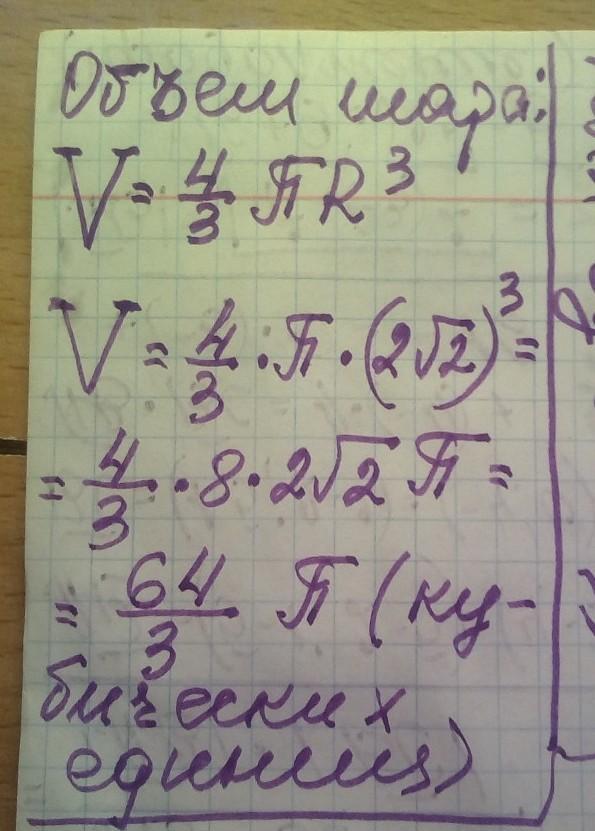 Объем шара:
V = 4/3 πR³
V = 4/3 · π · (2√2)³ =
= 4/3 · 8 · 2√2 π =
= 64/3 π (ку-
бических
единиц)